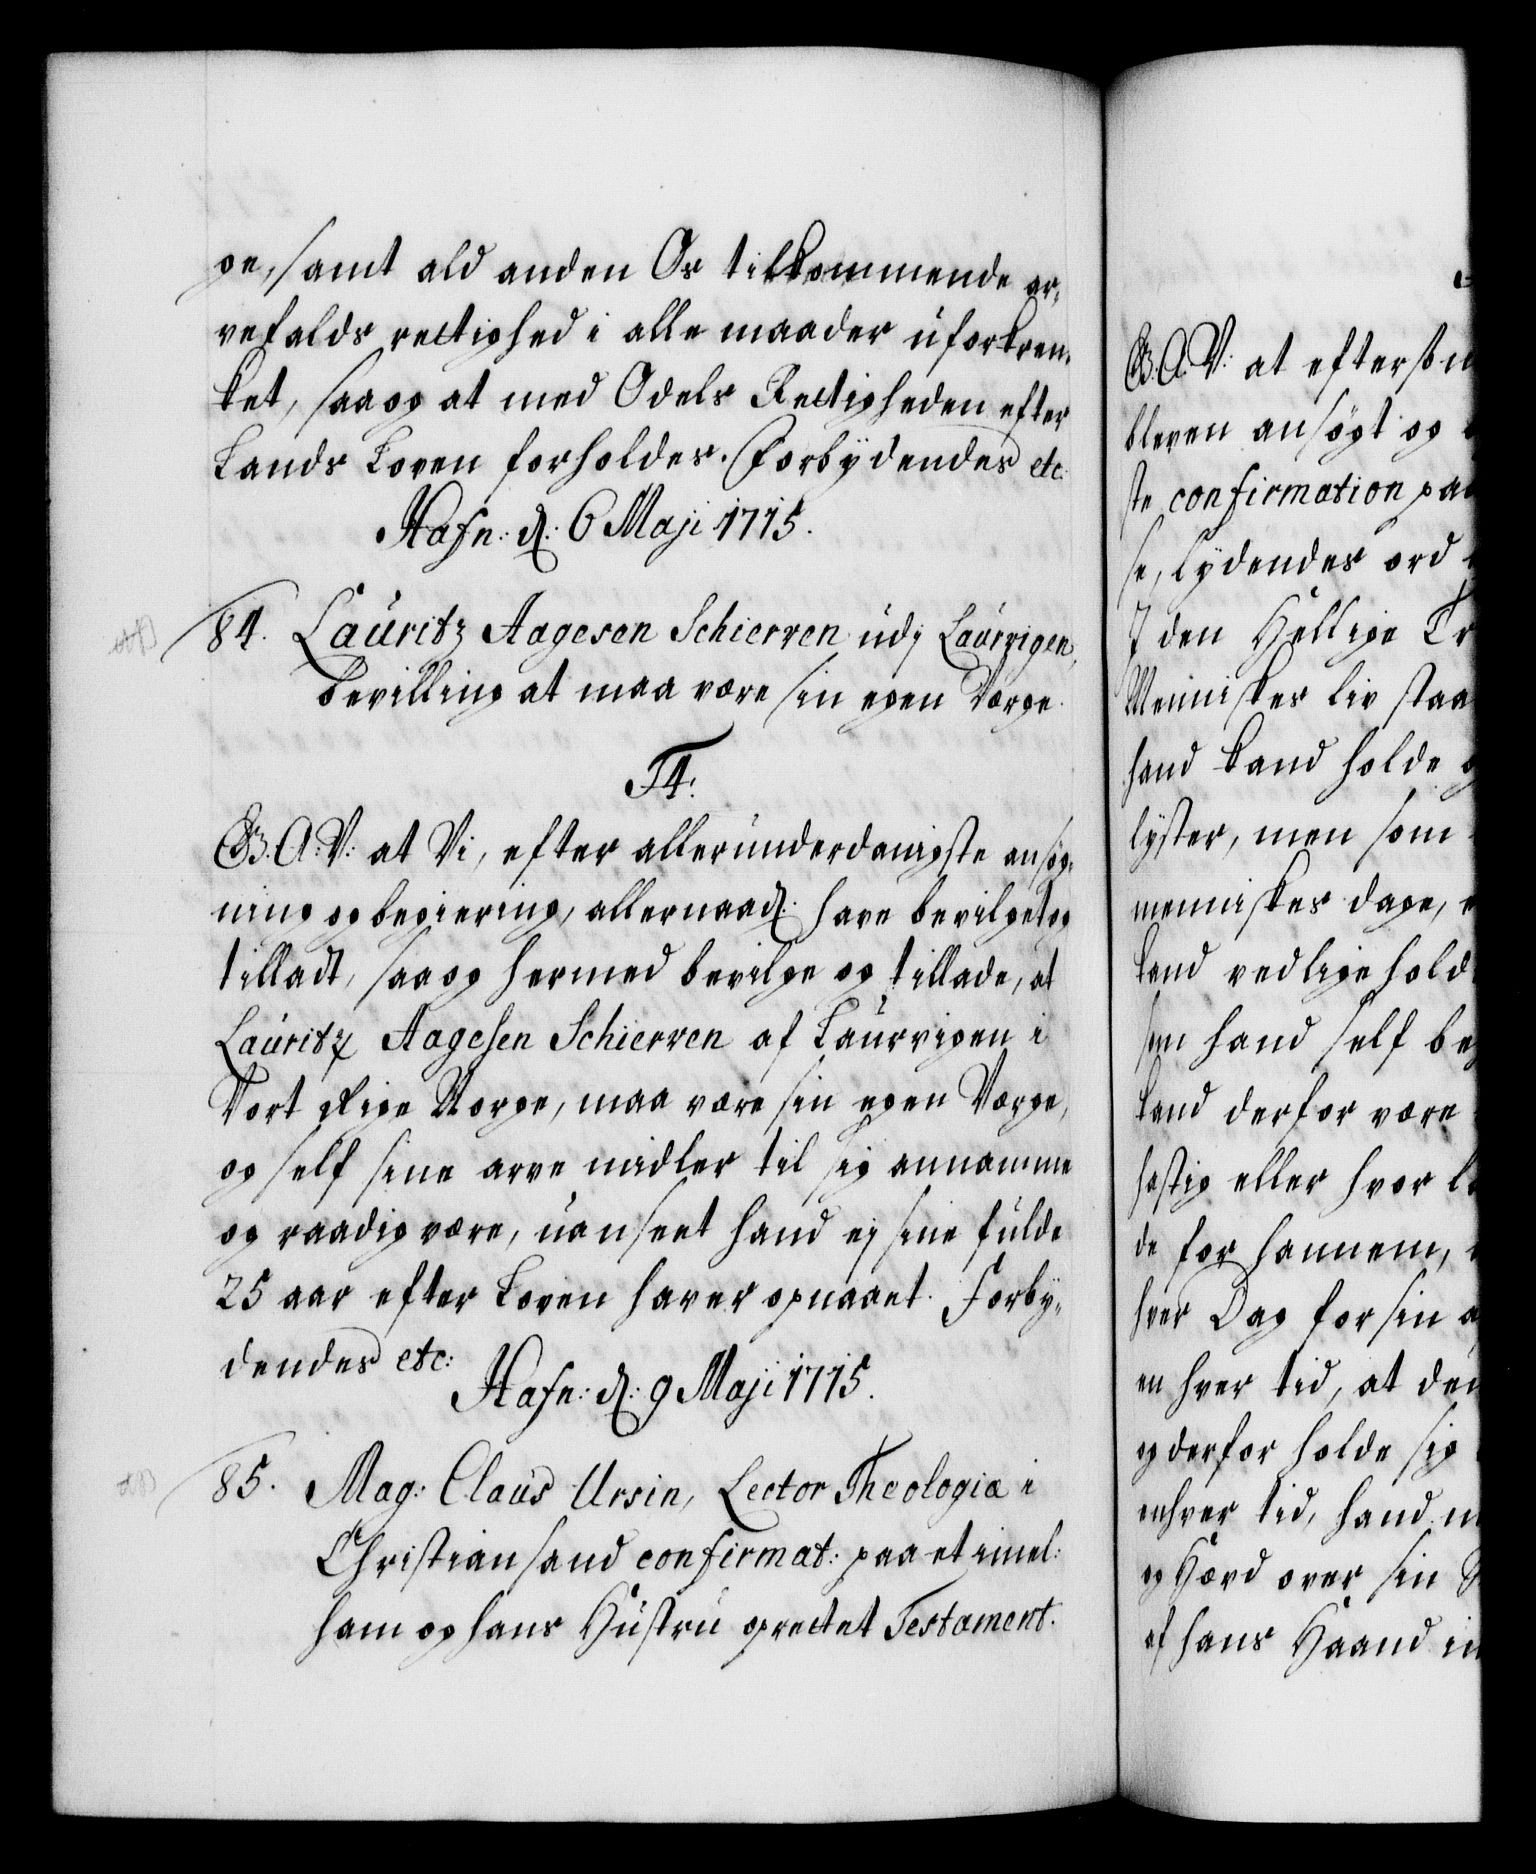 ge, samt ald anden Os tilkommende ar-
vefalds rettighed i alle maader uforkren-
ket, saa og at med Odels Rettigheden efter
Lands Loven forholdes. Forbydendes etc:
Hafn: d: 6 Maji 1715.
84. Lauritz Aagesen Schierven udj Laurvigen,
bevilling at maa være sin egen Værge.
F4:
G. A: V: at Vi, efter allerunderdanigste ansøg-
ning og begiering, allernaad: have bevilget og
tilladt, saa og hermed bevilge og tillade, at
Lauritz Aagesen Schierven af Laurvigen i
Vort Rige Norge, maa være sin egen Værge,
og self sine arve midler til sig annamme
og raadig være, uanseet hand ej sine fulde
25 aar efter Loven haver opnaaet. Forby-
dendes etc:
Hafn: d: 9 Maji 1715.
85. Mag: Claus Ursin, Lector Theologiæ i
Christiansand confirmat: paa et imel:
ham og hans Hustru oprettet Testament.
G. A. V: at eftersom
bleven ansøgt og
ste confirmation paa
se, lydendes ord
I den Hellige Tr
Menniskes liv staa
hand kand holde
lyster, men som
menniskes dage,
kand vedlige hold
som hand self be
kand derfor være
hastig eller hvor
de for hannem,
hver Dag for sin
en hver tid, at den
og derfor holde sig
enhver tid, hand
og Hærd over sin
af hans Haand